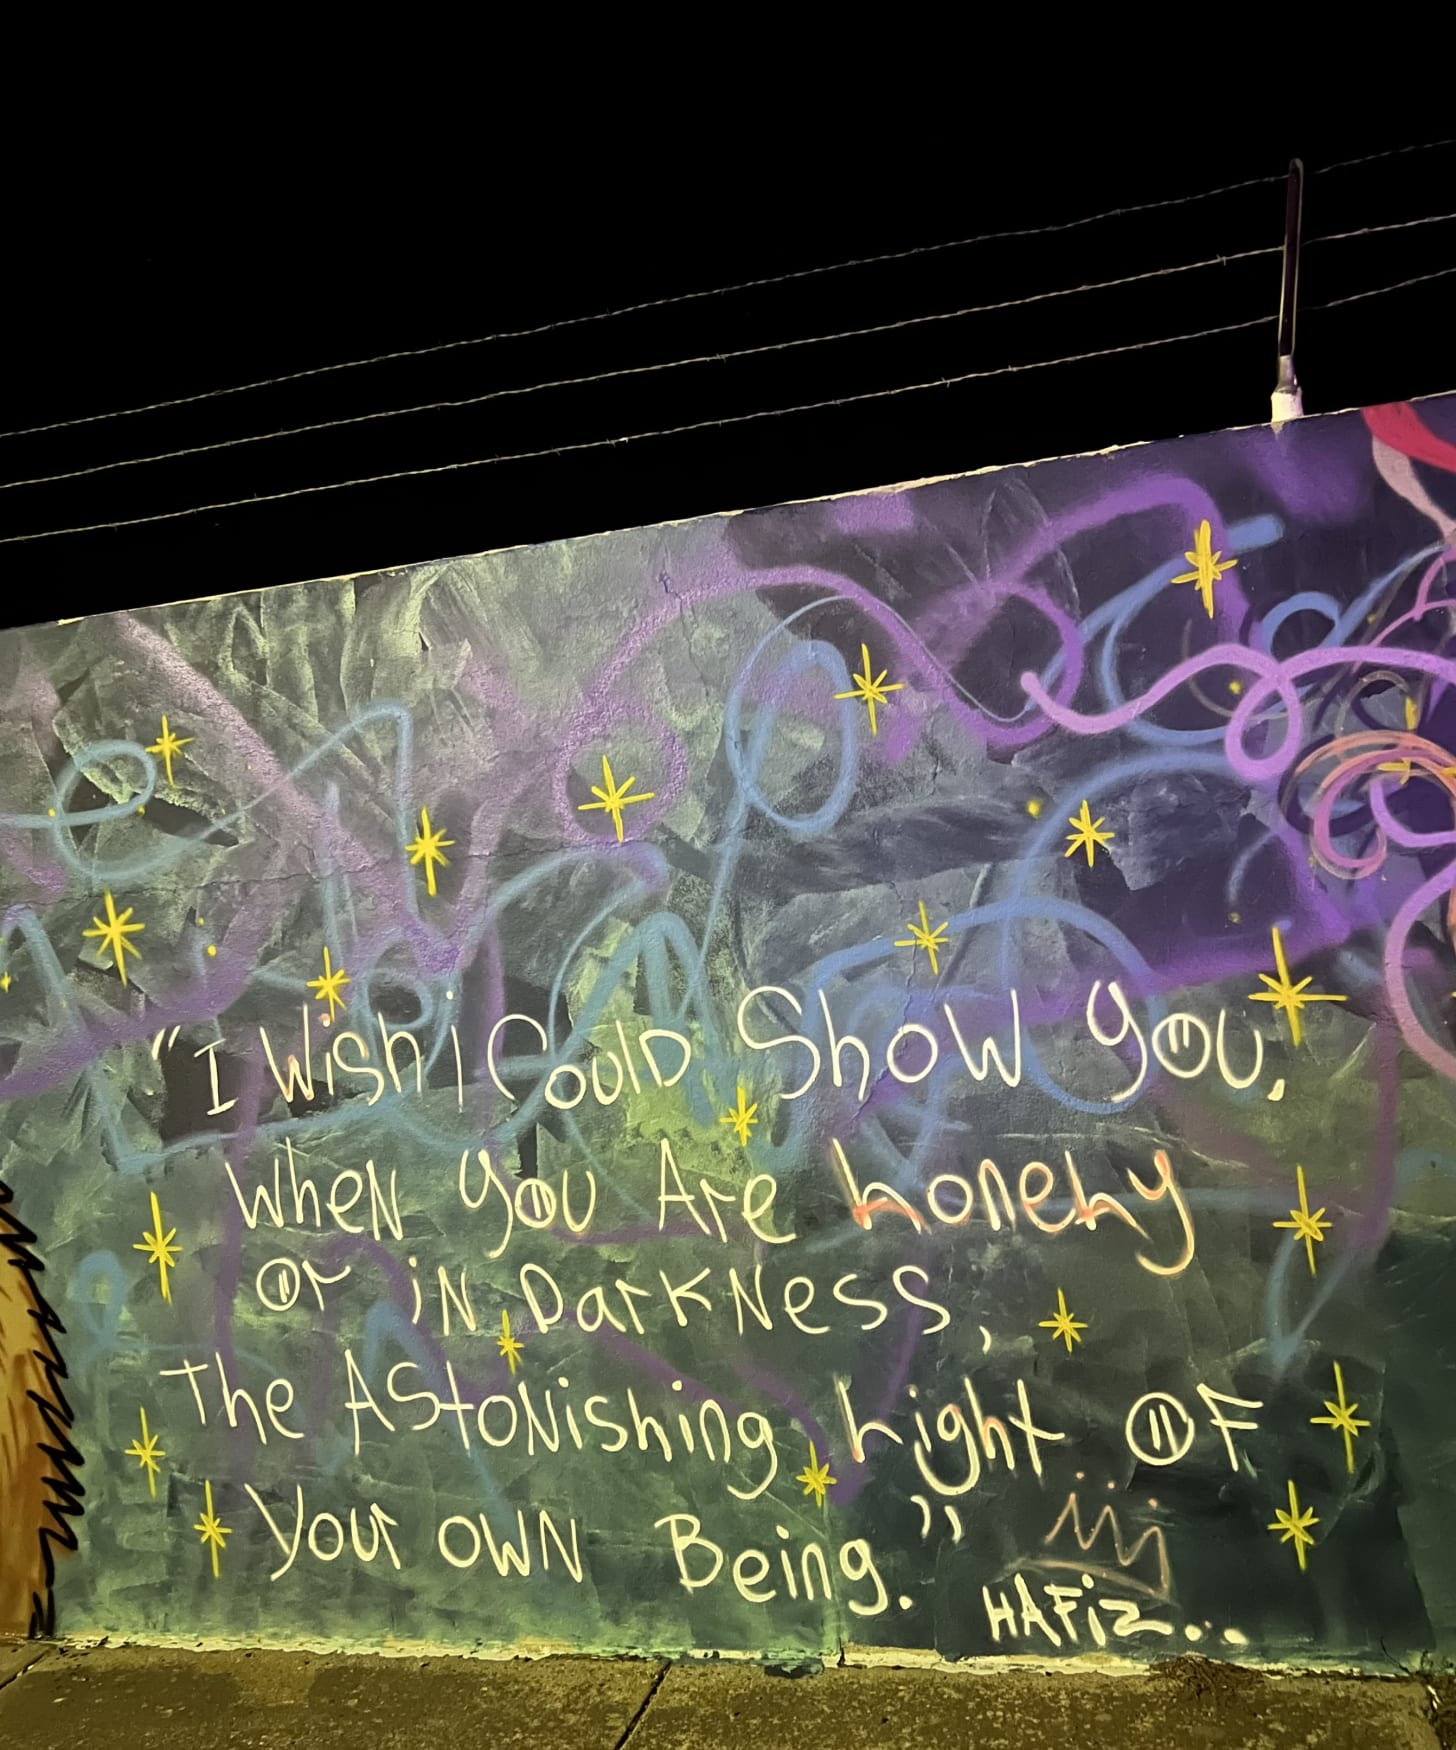 "I Wish i Could Show you,
When you Are Lonely
Or iN DarkNess,
The AStoNishing Light OF
Your OWN Being."
HAFiz...